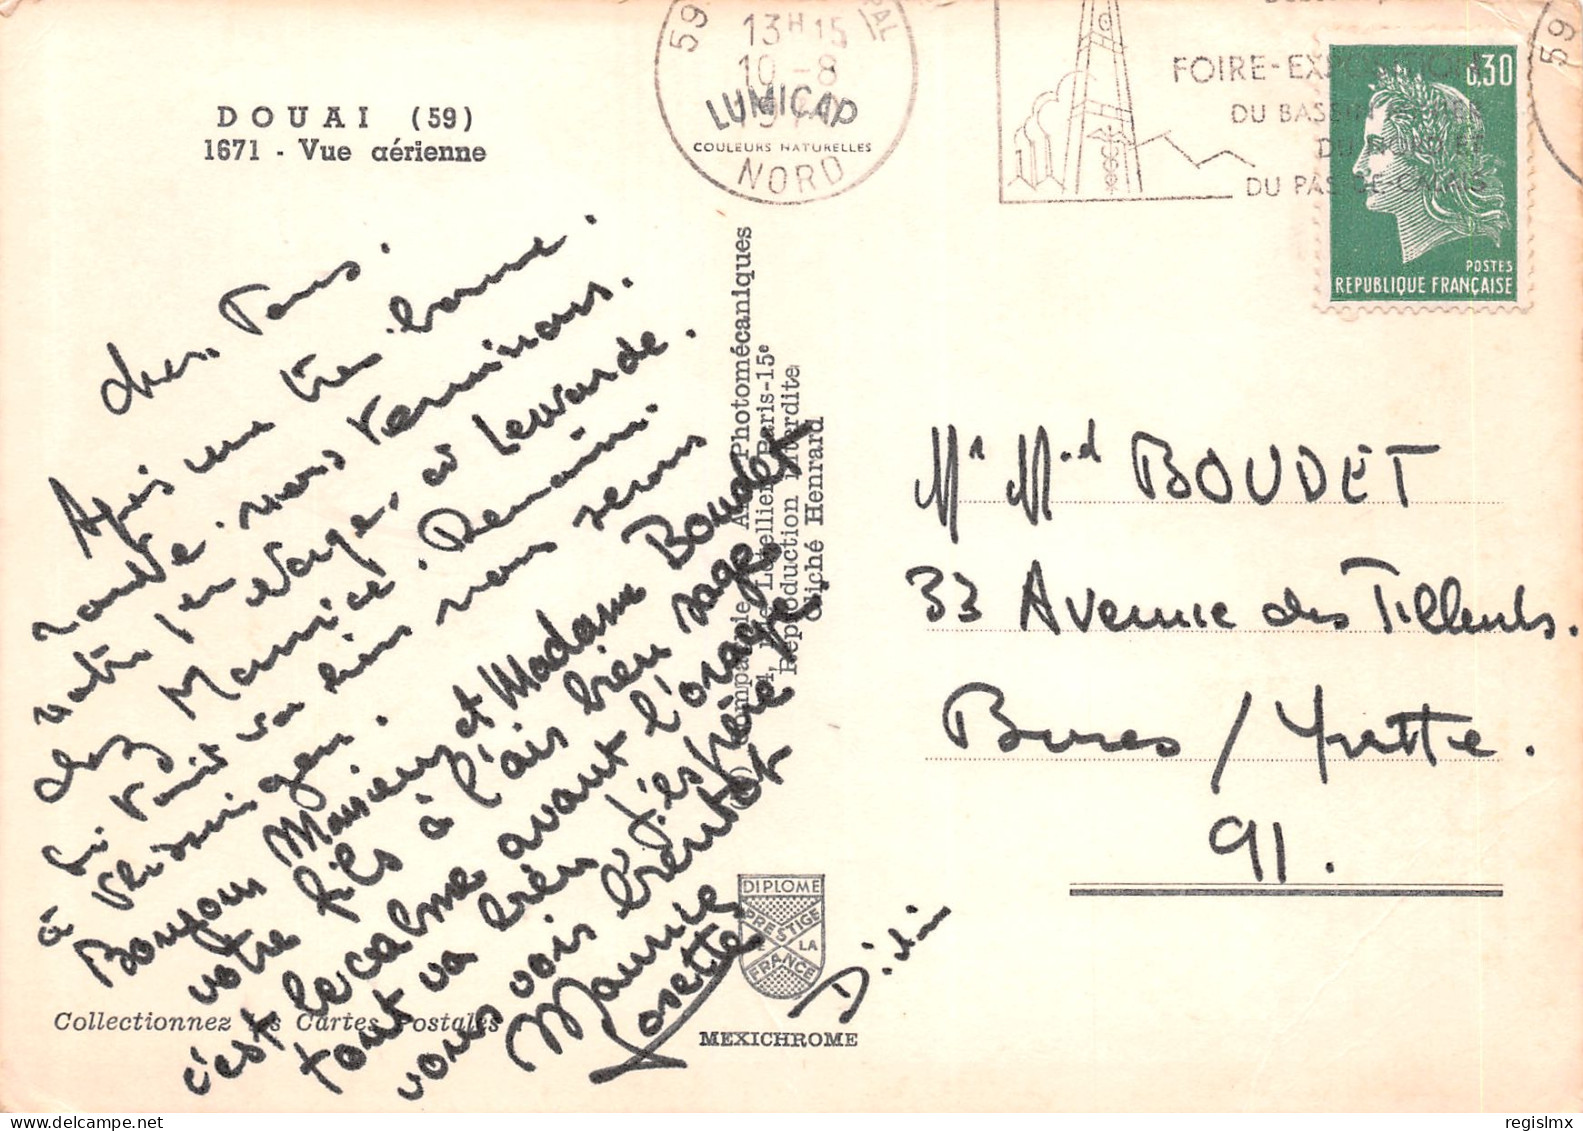 DOUAI (59)
1671 - Vue aérienne
59
13H15
10-8
LUMICAP
COULEURS NATURELLES
NORD
FOIRE-EXPOSITION
DU BASSIN MINIER
DU NORD ET
DU PAS-DE-CALAIS
0,30
POSTES
REPUBLIQUE FRANÇAISE
59
Chers Tous.
Après une très bonne
route. nous terminons
notre périple, à Lewarde.
chez Maurice. Demain
si tout va bien nous serons
à
Bonjour Monsieur et Madame Boudet
votre fils à l'air bien sage
c'est le calme avant l'orage.
tout va bien j'espère
vous vois bientôt
Maurice
Josette
Didier
Mr Md BOUDET
33 Avenue des Tilleuls.
Bures / Yvette.
91.
Photomécaniques
4, rue Letellier Paris-15e
Reproduction interdite
Cliché Henrard
DIPLOME
PRESTIGE
DE LA
FRANCE
MEXICHROME
Collectionnez les Cartes Postales
www.delcampe.net
regislmx